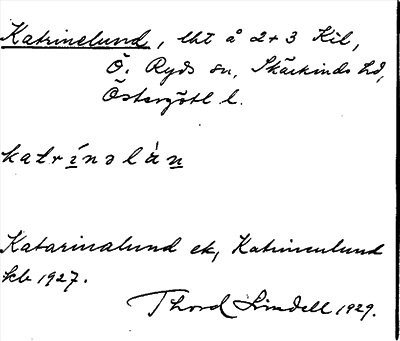 Katrinelund, lht å 2+3 Kil,
Ö. Ryds sn, Skärkinds hd,
Östergötl l.
katrínəlàn
Katarinalund ek, Katrineulund
kb 1927.
Thord Lindell 1929.